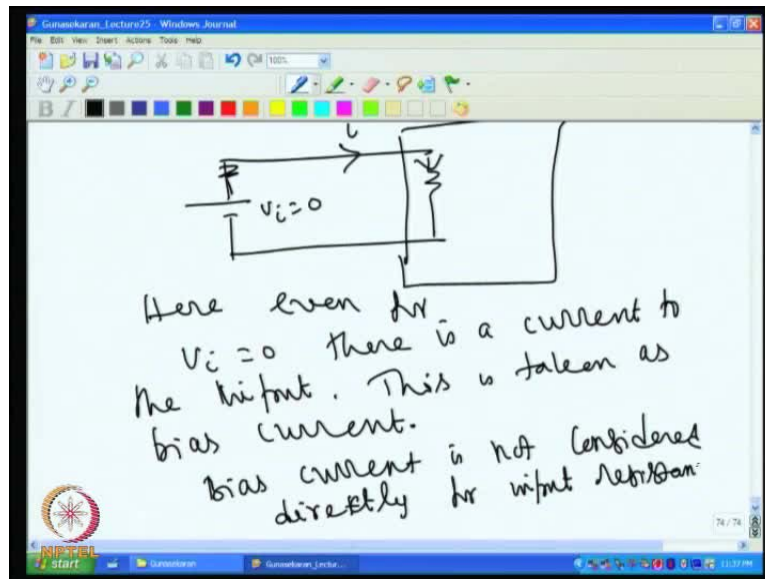 Gunasekaran_Lecture25 - Windows Journal
File Edit View Insert Actions Tools Help
100%
B I
i
Vi=0
Here even for
Vi = 0 there is a current to
the input. This is taken as
bias current.
Bias current is not considered
directly for input resistan
74 / 74
NPTEL
start Gunasekaran Gunasekaran_Lectur... 11:37PM